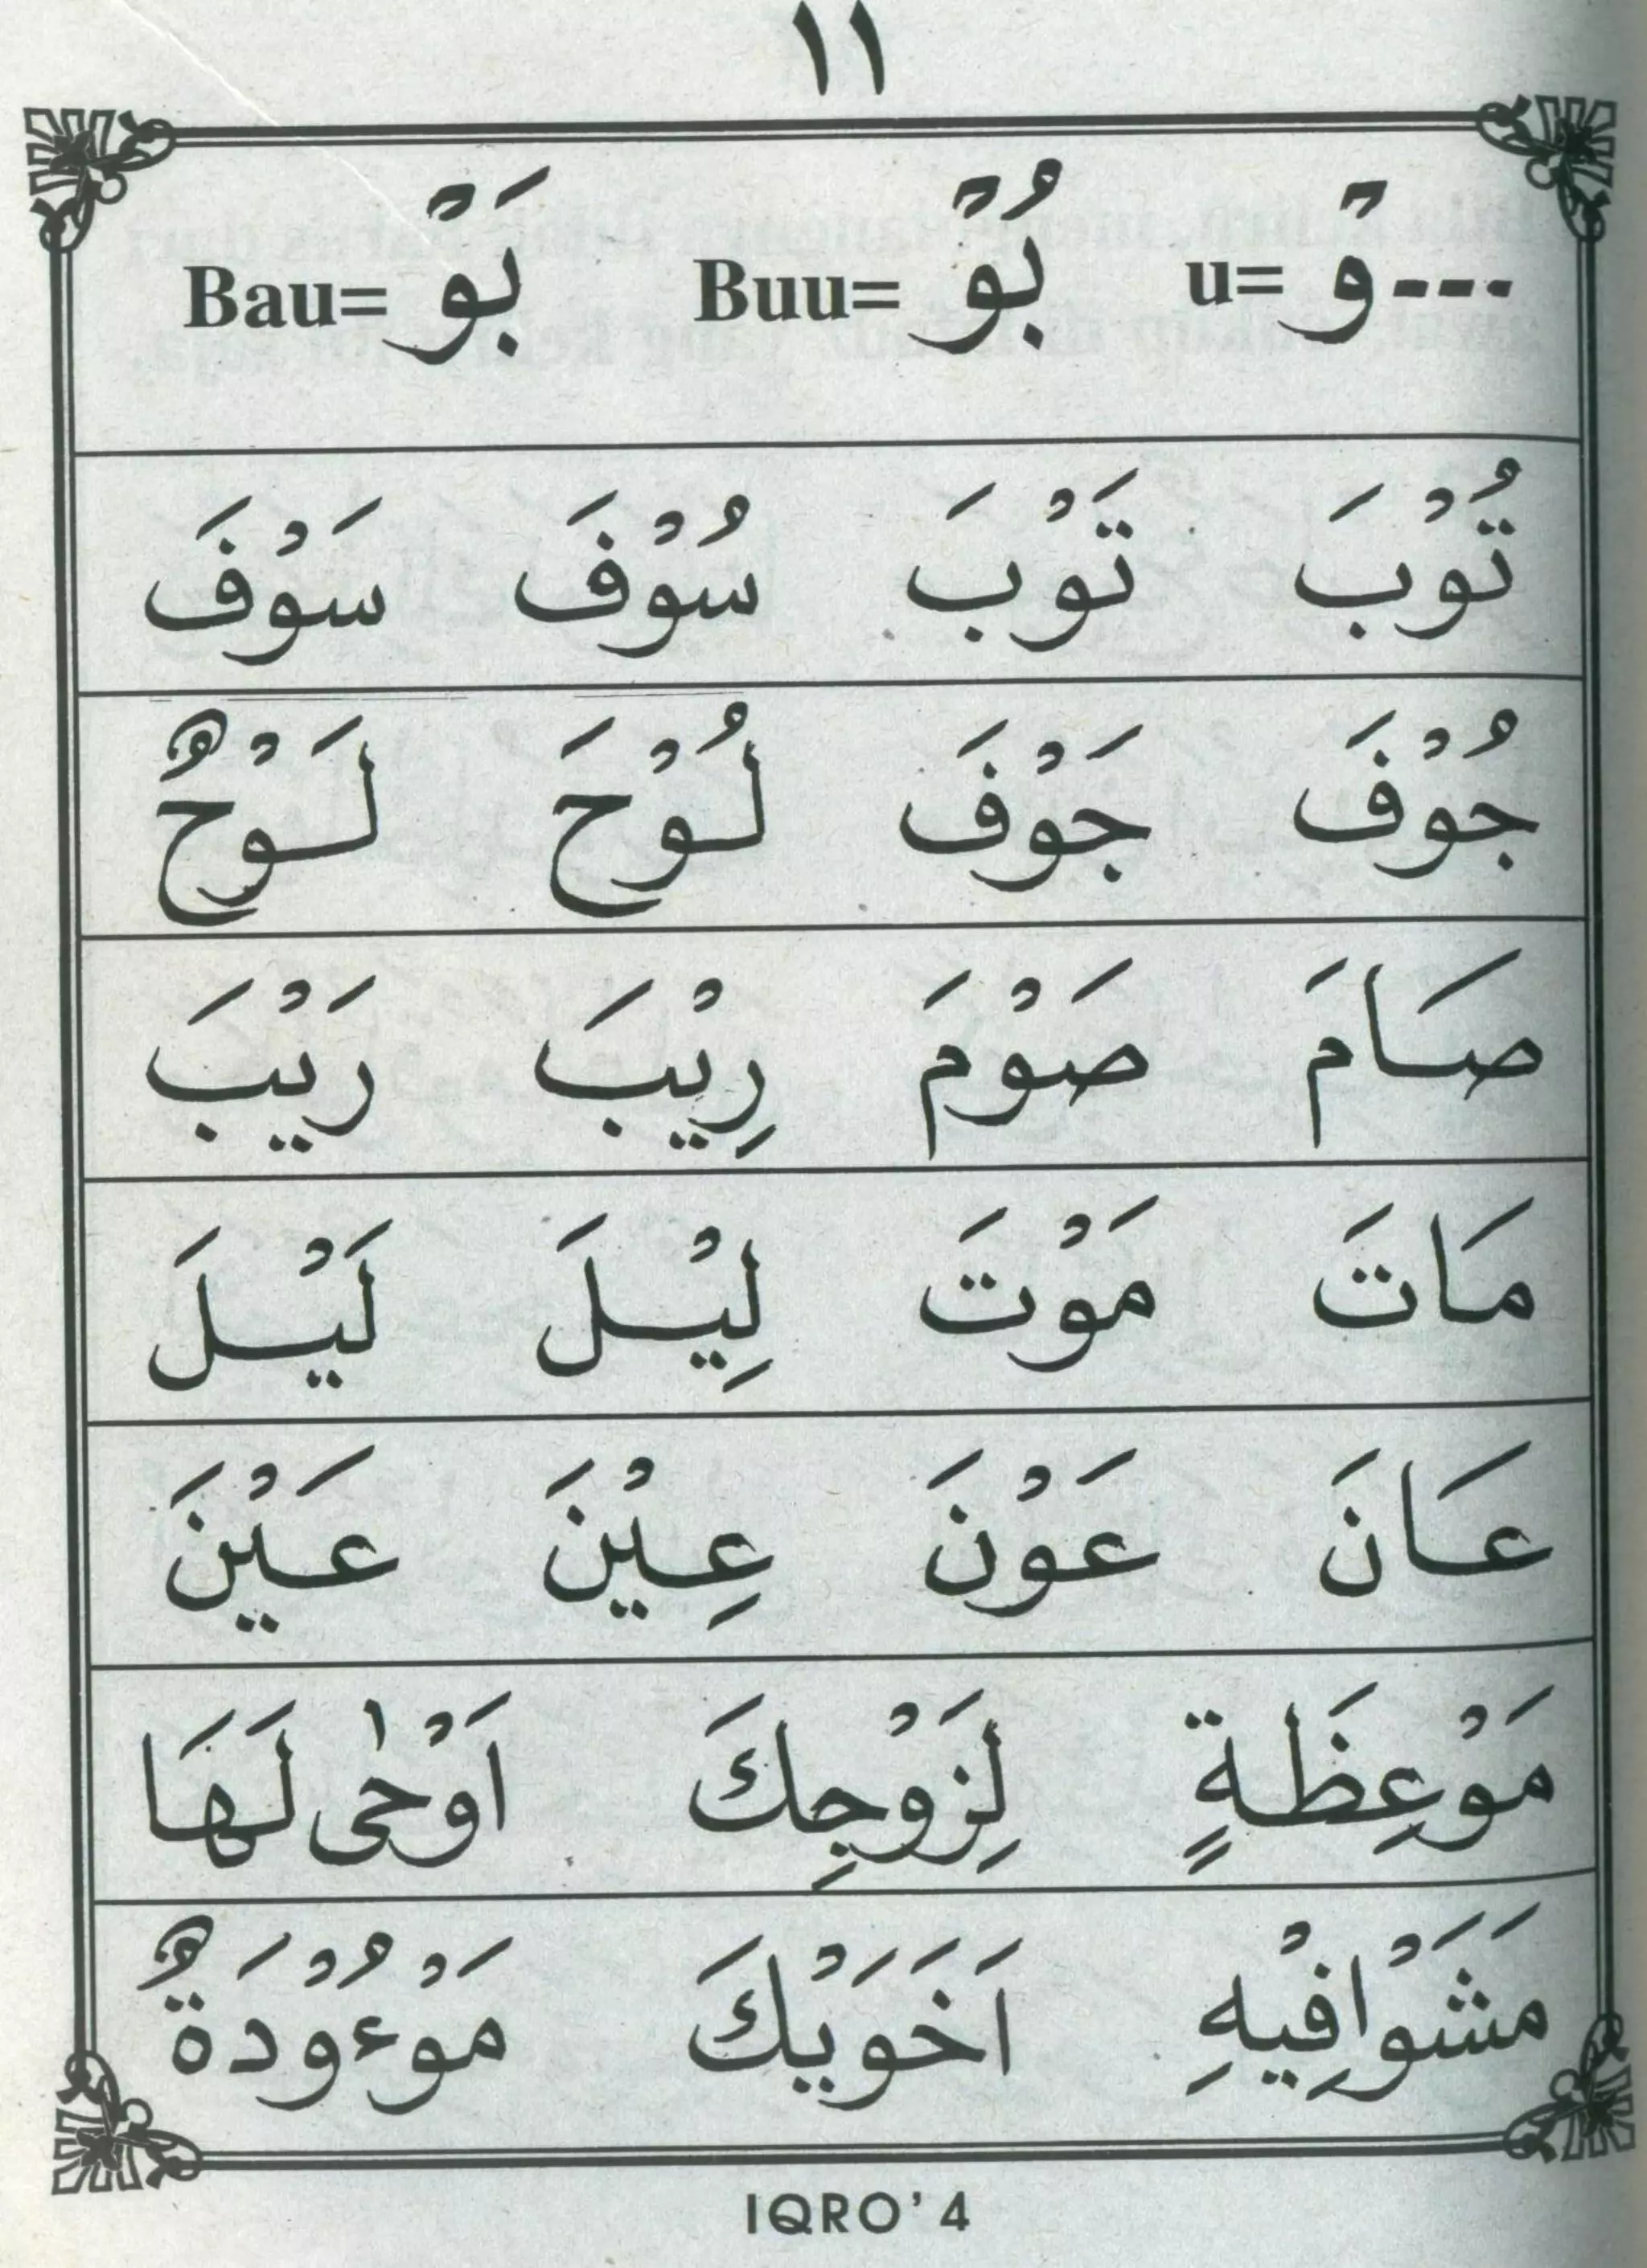 ١١
---وْ =u بُوْ =Buu بَوْ =Bau
تُوْبَ تَوْبَ سُوْفَ سَوْفَ
جُوْفَ جَوْفَ لُوْحَ لَوْحٌ
صَامَ صَوْمَ رِيْبَ رَيْبَ
مَاتَ مَوْتَ لِيْلَ لَيْلَ
عَانَ عَوْنَ عِيْنَ عَيْنَ
مَوْعِظَةٍ لِزَوْجِكَ اَوْحٰى لَهَا
مَشَوْافِيْهِ اَخَوَيْكَ مَوْءُوْدَةٌ
IQRO' 4